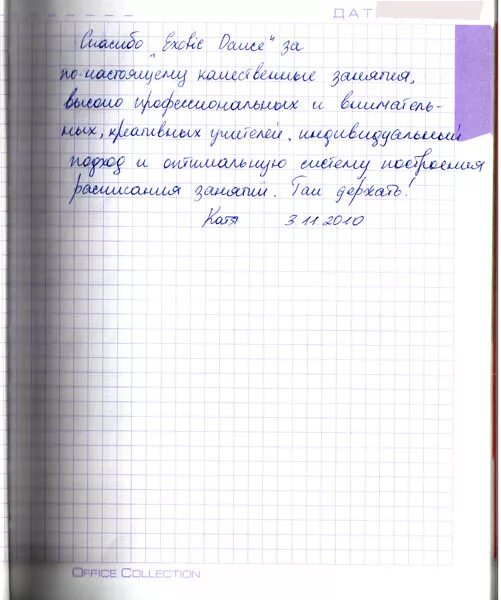 ДАТ
Спасибо "Exotic Dance" за
по-настоящему качественные занятия,
высоко профессиональных и вниматель-
ных, креативных учителей, индивидуальный
подход и оптимальную систему построения
расписания занятий. Так держать!
Катя 3.11.2010
OFFICE COLLECTION